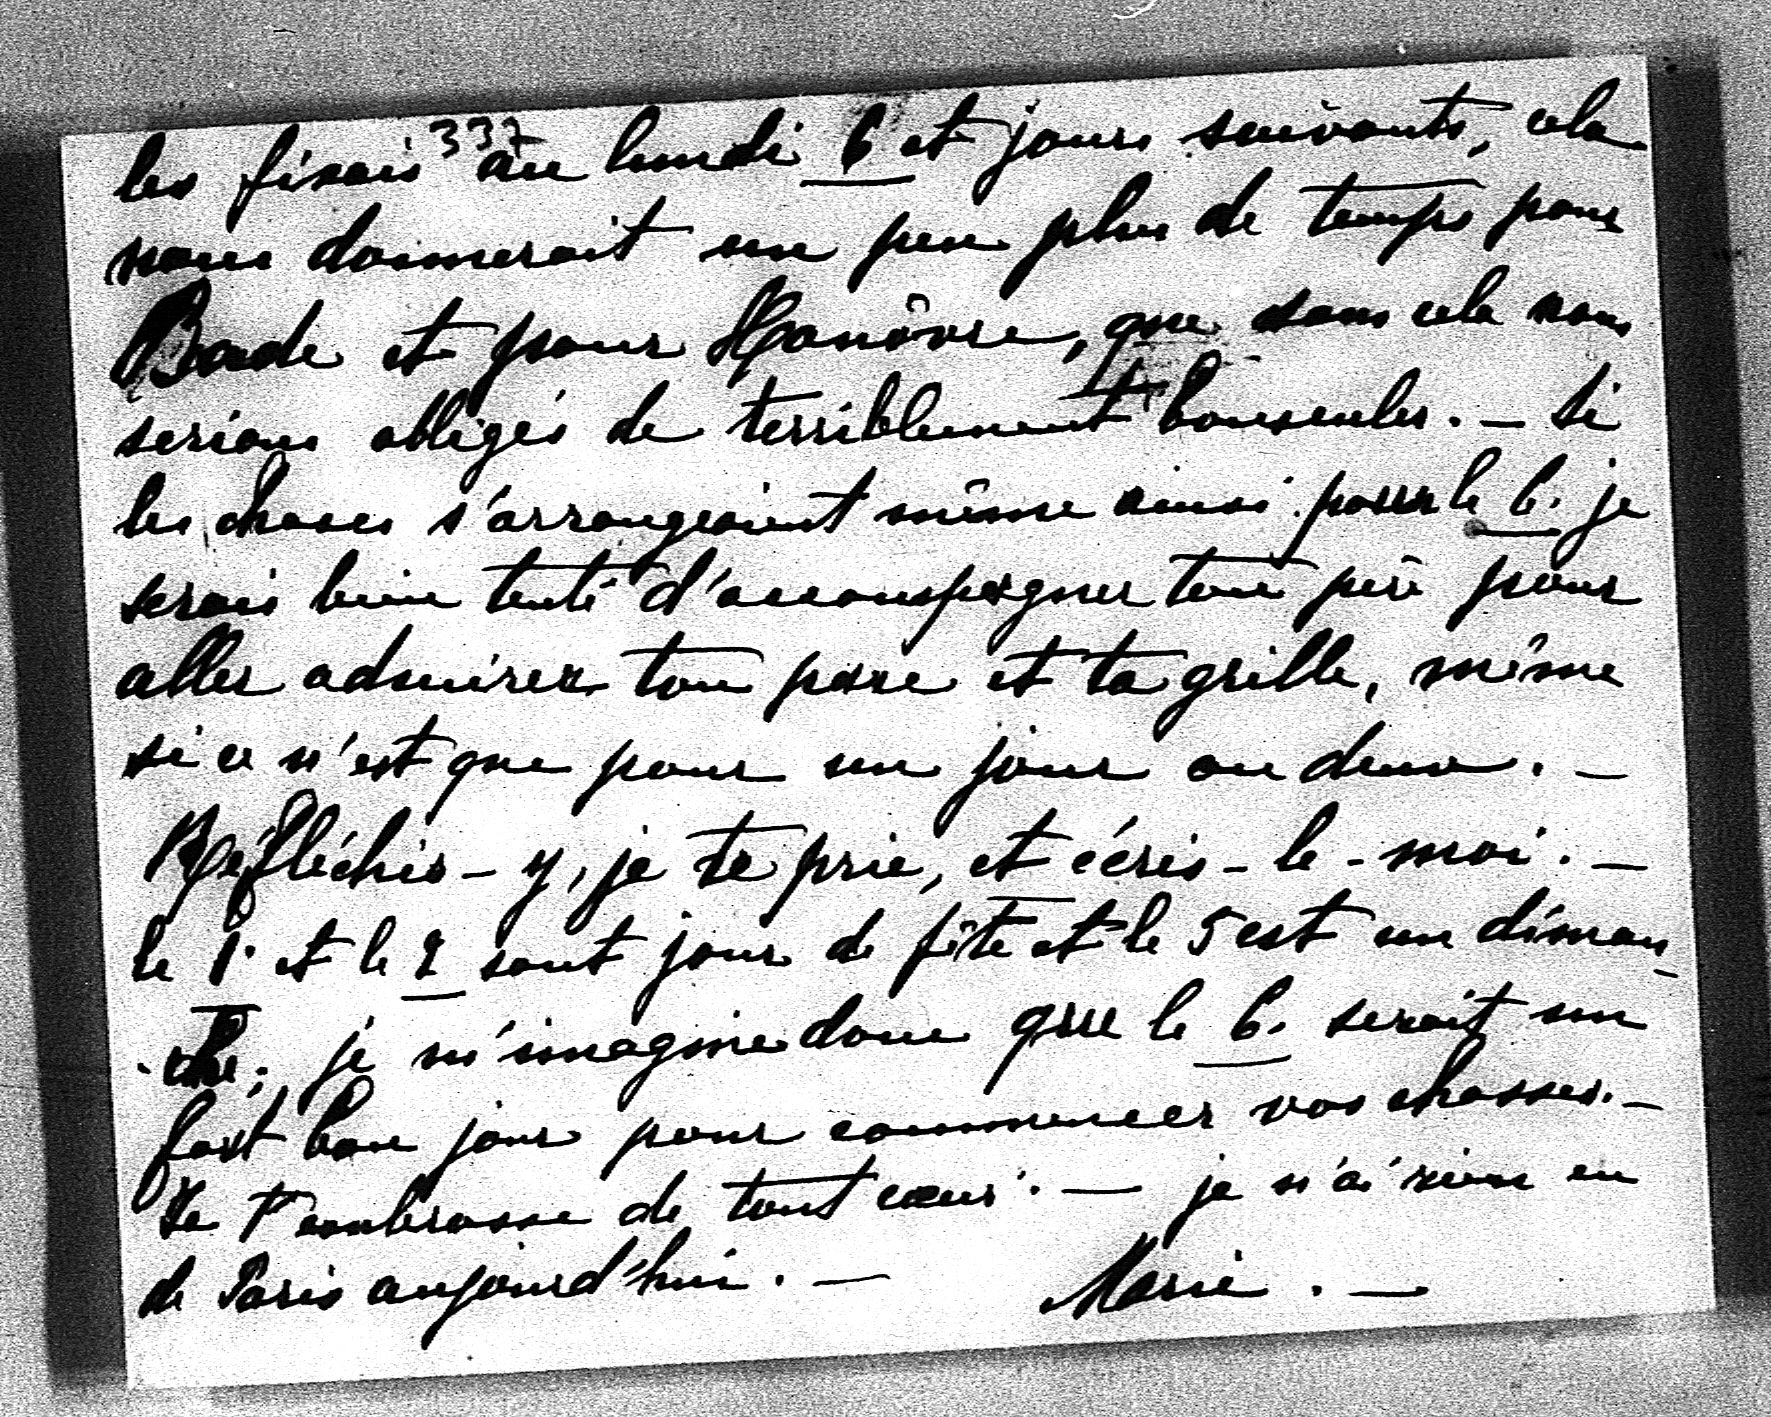 337
les fixais au lundi 6 et jours suivants, cela
nous donnerait un peu plus de temps pour
Bade et pour Hanôvre, que sans cela nous
serions obligés de terriblement bousculer. — Si
les choses s'arrangeaient même ainsi pour le 6. je
serais bien tenté d'accompagner ton père pour
aller admirer ton parc et ta grille, même
si ce n'est que pour un jour ou deux. —
Réfléchis-y, je te prie, et écris-le-moi. —
le 1. et le 2 sont jour de fête et le 5 est un diman-
che; je m'imagine donc que le 6. serait un
fort bon jour pour commencer vos chasses. —
Je t'embrasse de tout cœur. — je n'ai rien eu
de Paris aujourd'hui. — Marie. —